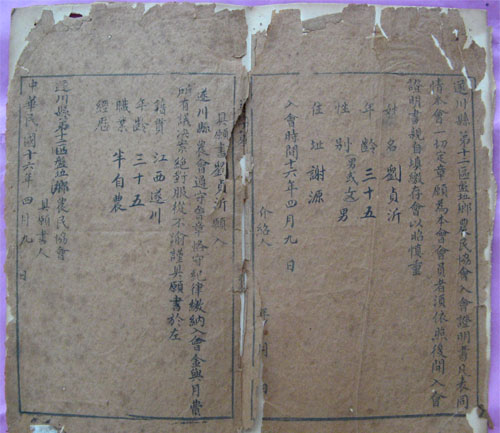 遂川縣第十二區盤坵鄉農民協會入會證明書凡表同
情本會一切定章願爲本會會員者須依照後開入會
證明書親自填繳存會以昭慎重
姓 名 劉貞沂
年 齡 三十五
性 别 男或女 男
住 址 謝源
入會時間十六年四月九日
介紹人
年 月 日
具願書劉貞沂願入
遂川縣農會遵守會章與守紀律繳納入會金與月費
所有議决案絕對服從不渝謹具願書於左
籍貫 江西遂川
年龄 三十五
職業 半自農
經歷
遂川縣第十二區盤坵鄉農民協會
具願書人
中華民國十六年四月九日